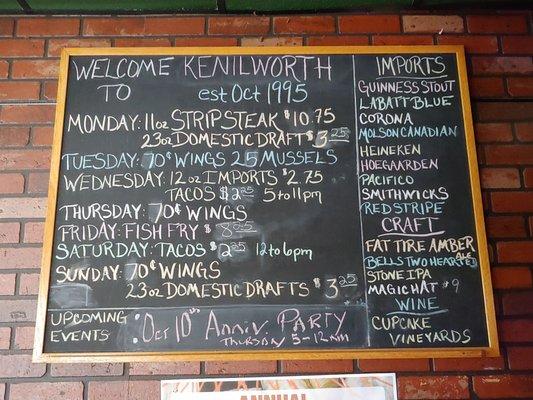 WELCOME KENILWORTH
TO est Oct 1995
MONDAY: 11oz STRIP STEAK $10.75
23oz DOMESTIC DRAFT $3.25
TUESDAY: 70¢ WINGS 25 MUSSELS
WEDNESDAY: 12oz IMPORTS $2.75
TACOS $2.25 5 to 11pm
THURSDAY: 70¢ WINGS
FRIDAY: FISH FRY $8.25
SATURDAY: TACOS $2.25 12 to 6pm
SUNDAY: 70¢ WINGS
23oz DOMESTIC DRAFTS $3.25
UPCOMING
EVENTS
: Oct 10th Anniv. PARTY
THURSDAY 5-12AM
IMPORTS
GUINNESS STOUT
LABATT BLUE
CORONA
MOLSON CANADIAN
HEINEKEN
HOEGAARDEN
PACIFICO
SMITHWICKS
RED STRIPE
CRAFT
FAT TIRE AMBER
BELLS TWO HEARTED ALE
STONE IPA
MAGIC HAT #9
WINE
CUPCAKE
VINEYARDS
ANNUAL